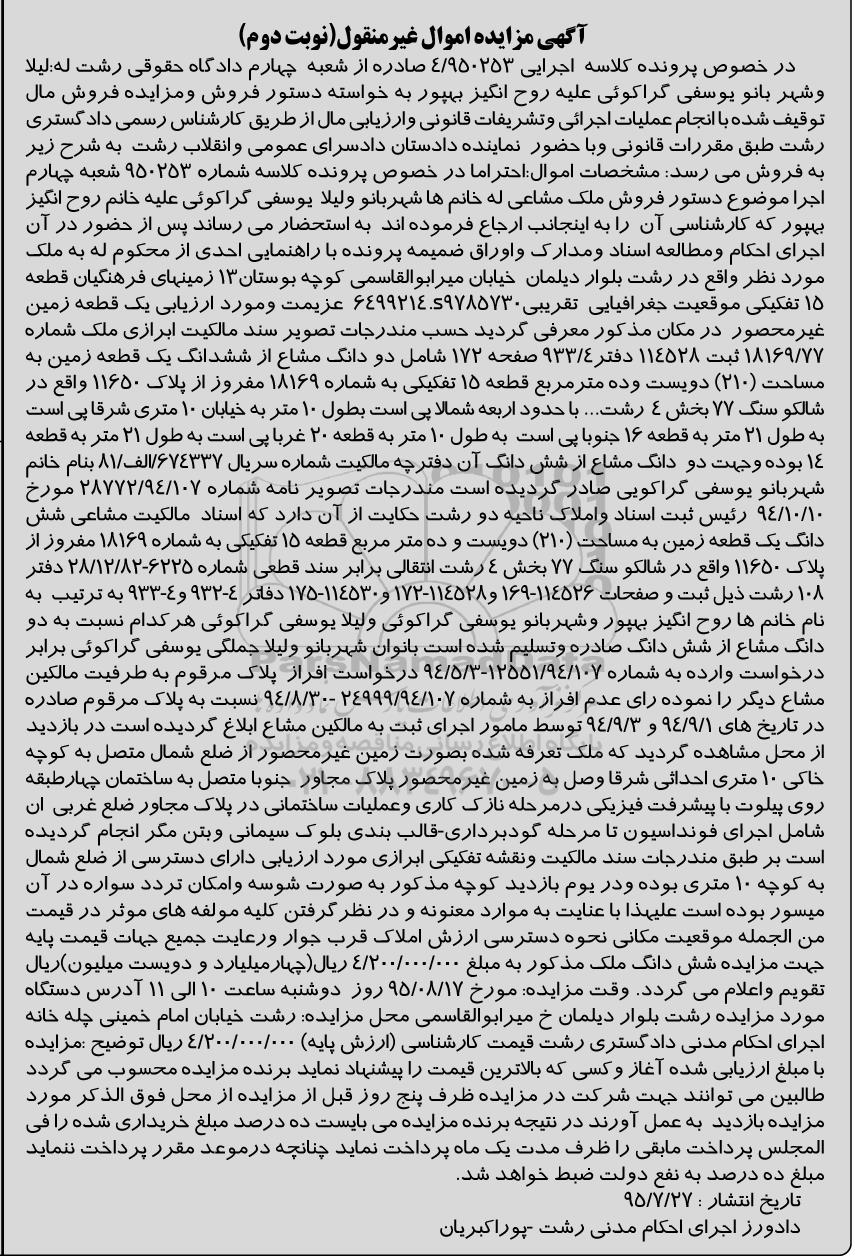 آگهی مزایده اموال غیرمنقول(نوبت دوم)
در خصوص پرونده کلاسه اجرایی ٤/٩٥٠٢٥٣ صادره از شعبه چهارم دادگاه حقوقی رشت له:لیلا
وشهر بانو یوسفی گراکوئی علیه روح انگیز بهپور به خواسته دستور فروش ومزایده فروش مال
توقیف شده با انجام عملیات اجرائی وتشریفات قانونی وارزیابی مال از طریق کارشناس رسمی دادگستری
رشت طبق مقررات قانونی وبا حضور نماینده دادستان دادسرای عمومی وانقلاب رشت به شرح زیر
به فروش می رسد: مشخصات اموال:احتراما در خصوص پرونده کلاسه شماره ٩٥٠٢٥٣ شعبه چهارم
اجرا موضوع دستور فروش ملک مشاعی له خانم ها شهربانو ولیلا یوسفی گراکوئی علیه خانم روح انگیز
بهپور که کارشناسی آن را به اینجانب ارجاع فرموده اند به استحضار می رساند پس از حضور در آن
اجرای احکام ومطالعه اسناد ومدارک واوراق ضمیمه پرونده با راهنمایی احدی از محکوم له به ملک
مورد نظر واقع در رشت بلوار دیلمان خیابان میرابوالقاسمی کوچه بوستان١٣ زمینهای فرهنگیان قطعه
١٥ تفکیکی موقعیت جغرافیایی تقریبی٦٤٩٩٢١٤.s٩٧٨٥٧٣٠ عزیمت ومورد ارزیابی یک قطعه زمین
غیرمحصور در مکان مذکور معرفی گردید حسب مندرجات تصویر سند مالکیت ابرازی ملک شماره
١٨١٦٩/٧٧ ثبت ١١٤٥٢٨ دفتر٩٣٣/٤ صفحه ١٧٢ شامل دو دانگ مشاع از ششدانگ یک قطعه زمین به
مساحت (٢١٠) دویست وده مترمربع قطعه ١٥ تفکیکی به شماره ١٨١٦٩ مفروز از پلاک ١١٦٥٠ واقع در
شالکو سنگ ٧٧ بخش ٤ رشت... با حدود اربعه شمالا پی است بطول ١٠ متر به خیابان ١٠ متری شرقا پی است
به طول ٢١ متر به قطعه ١٦ جنوبا پی است به طول ١٠ متر به قطعه ٢٠ غربا پی است به طول ٢١ متر به قطعه
١٤ بوده وجهت دو دانگ مشاع از شش دانگ آن دفترچه مالکیت شماره سریال ٦٧٤٣٣٧/الف/٨١ بنام خانم
شهربانو یوسفی گراکویی صادر گردیده است مندرجات تصویر نامه شماره ٢٨٧٧٢/٩٤/١٠٧ مورخ
٩٤/١٠/١٠ رئیس ثبت اسناد واملاک ناحیه دو رشت حکایت از آن دارد که اسناد مالکیت مشاعی شش
دانگ یک قطعه زمین به مساحت (٢١٠) دویست و ده متر مربع قطعه ١٥ تفکیکی به شماره ١٨١٦٩ مفروز از
پلاک ١١٦٥٠ واقع در شالکو سنگ ٧٧ بخش ٤ رشت انتقالی برابر سند قطعی شماره ٦٢٢٥-٢٨/١٢/٨٢ دفتر
١٠٨ رشت ذیل ثبت و صفحات ١١٤٥٢٦-١٦٩ و١١٤٥٢٨-١٧٢ و١١٤٥٣٠-١٧٥ دفاتر ٤-٩٣٢ و٤-٩٣٣ به ترتیب به
نام خانم ها روح انگیز بهپور وشهربانو یوسفی گراکوئی ولیلا یوسفی گراکوئی هرکدام نسبت به دو
دانگ مشاع از شش دانگ صادره وتسلیم شده است بانوان شهربانو ولیلا جملگی یوسفی گراکوئی برابر
درخواست وارده به شماره ١٢٥٥١/٩٤/١٠٧-٩٤/٥/٣ درخواست افراز پلاک مرقوم به طرفیت مالکین
مشاع دیگر را نموده رای عدم افراز به شماره ٢٤٩٩٩/٩٤/١٠٧ -٩٤/٨/٣٠ نسبت به پلاک مرقوم صادره
در تاریخ های ٩٤/٩/١ و ٩٤/٩/٣ توسط مامور اجرای ثبت به مالکین مشاع ابلاغ گردیده است در بازدید
از محل مشاهده گردید که ملک تعرفه شده بصورت زمین غیرمحصور از ضلع شمال متصل به کوچه
خاکی ١٠ متری احداثی شرقا وصل به زمین غیرمحصور پلاک مجاور جنوبا متصل به ساختمان چهارطبقه
روی پیلوت با پیشرفت فیزیکی درمرحله نازک کاری وعملیات ساختمانی در پلاک مجاور ضلع غربی ان
شامل اجرای فونداسیون تا مرحله گودبرداری-قالب بندی بلوک سیمانی وبتن مگر انجام گردیده
است بر طبق مندرجات سند مالکیت ونقشه تفکیکی ابرازی مورد ارزیابی دارای دسترسی از ضلع شمال
به کوچه ١٠ متری بوده ودر یوم بازدید کوچه مذکور به صورت شوسه وامکان تردد سواره در آن
میسور بوده است علیهذا با عنایت به موارد معنونه و در نظرگرفتن کلیه مولفه های موثر در قیمت
من الجمله موقعیت مکانی نحوه دسترسی ارزش املاک قرب جوار ورعایت جمیع جهات قیمت پایه
جهت مزایده شش دانگ ملک مذکور به مبلغ ٤/٢٠٠/٠٠٠/٠٠٠ ریال(چهارمیلیارد و دویست میلیون)ریال
تقویم واعلام می گردد. وقت مزایده: مورخ ٩٥/٠٨/١٧ روز دوشنبه ساعت ١٠ الی ١١ آدرس دستگاه
مورد مزایده رشت بلوار دیلمان خ میرابوالقاسمی محل مزایده: رشت خیابان امام خمینی چله خانه
اجرای احکام مدنی دادگستری رشت قیمت کارشناسی (ارزش پایه) ٤/٢٠٠/٠٠٠/٠٠٠ ریال توضیح :مزایده
با مبلغ ارزیابی شده آغاز وکسی که بالاترین قیمت را پیشنهاد نماید برنده مزایده محسوب می گردد
طالبین می توانند جهت شرکت در مزایده ظرف پنج روز قبل از مزایده از محل فوق الذکر مورد
مزایده بازدید به عمل آورند در نتیجه برنده مزایده می بایست ده درصد مبلغ خریداری شده را فی
المجلس پرداخت مابقی را ظرف مدت یک ماه پرداخت نماید چنانچه درموعد مقرر پرداخت ننماید
مبلغ ده درصد به نفع دولت ضبط خواهد شد.
تاریخ انتشار : ٩٥/٧/٢٧
دادورز اجرای احکام مدنی رشت -پوراکبریان
ParsNamadData